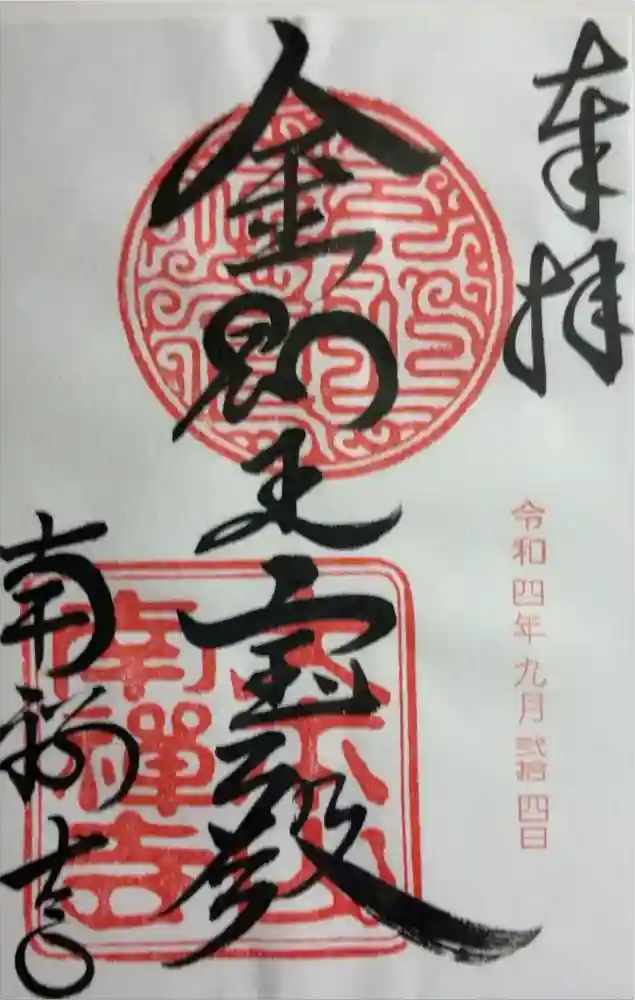 奉拝
令和四年九月弐拾四日
金剛王宝殿
南禅寺
南禪寺